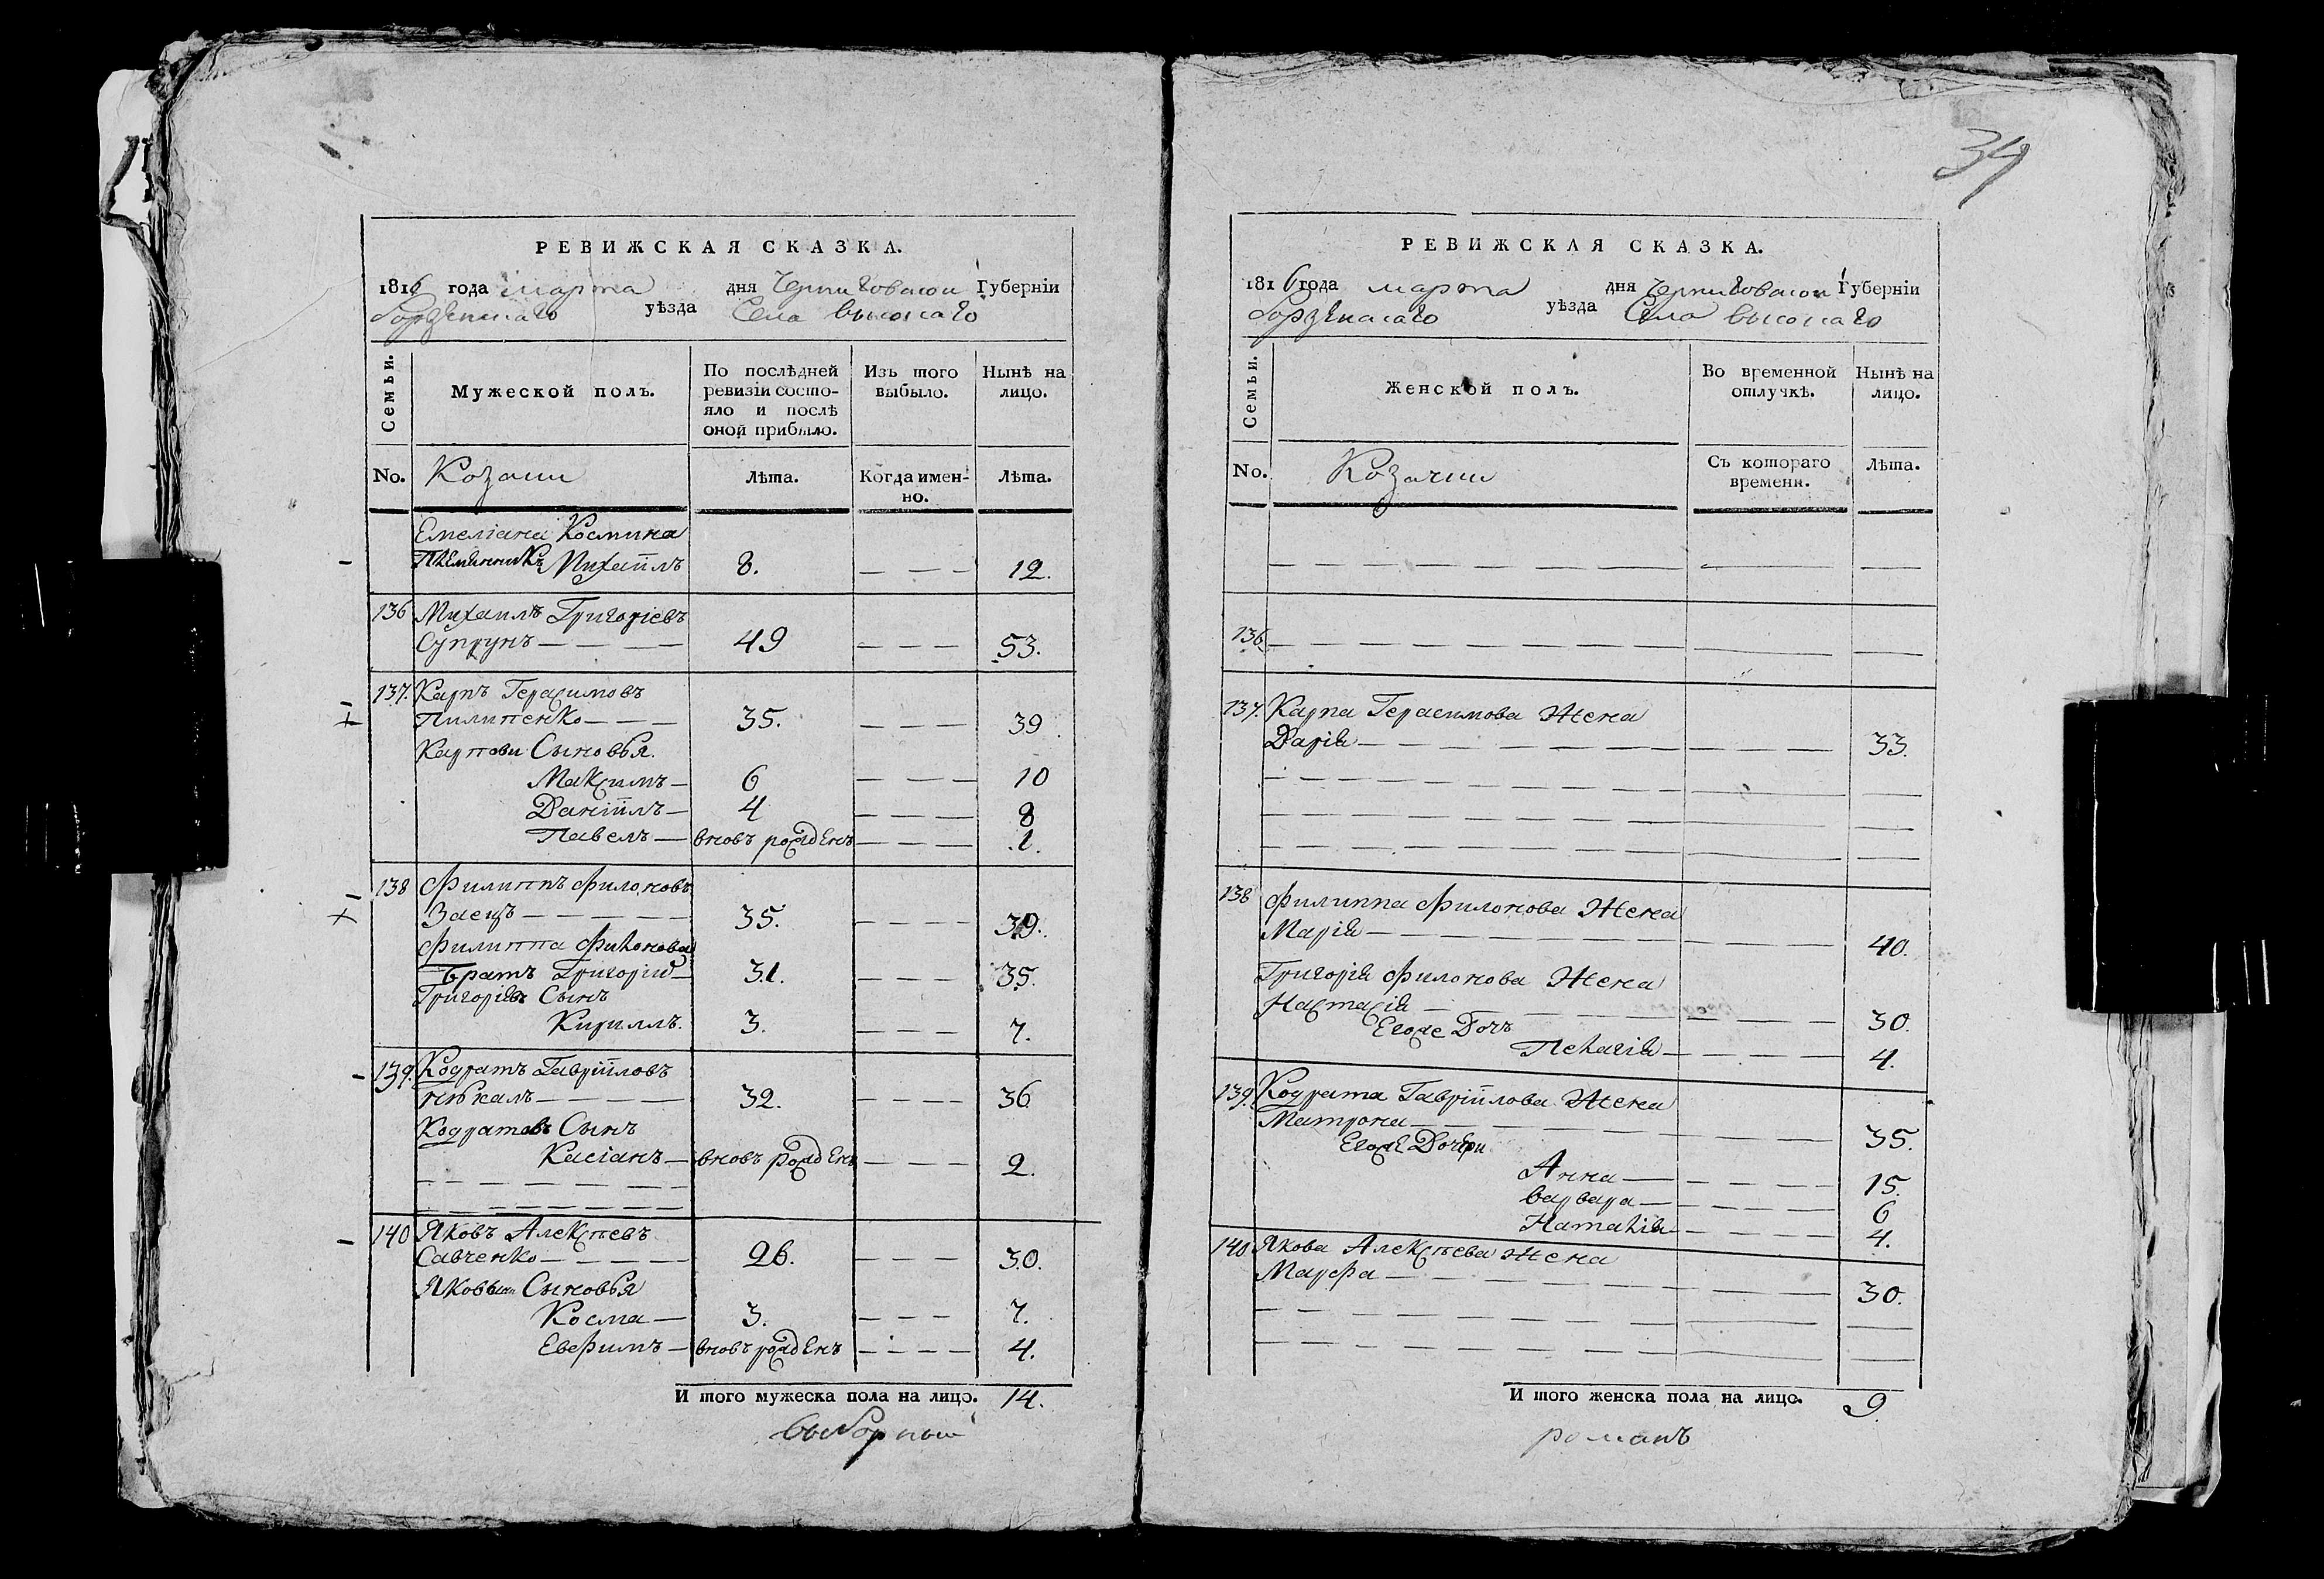 34
РЕВИЖСКАЯ СКАЗКА.
1816 года марта дня Черниговской Губерніи
Борзенскаго уѣзда Села высокаго
Семьи.
Мужеской полъ.
По послѣдней ревизіи состо-
яло и послѣ
оной прибыло.
Изъ того
выбыло.
Нынѣ на
лицо.
No. Козаки Лѣта. Когда имен-
но. Лѣта.
Емеліана Космина
Племянникъ Михаилъ 8. 12.
136 Михаилъ Григоріевъ
Супрунъ 49 53.
137. Карпъ Герасимовъ
Пилипенко 35. 39
Карпови Сыновья.
Максимъ 6 10
Даніилъ 4 8
Павелъ вновь рожденъ 1.
138 Филиппъ Филоновъ
Заецъ 35. 39.
Филиппа Филонова
Братъ Григорій 31. 35.
Григоріевъ Сынъ
Кириллъ. 3. 7.
139. Кодратъ Гавріиловъ
32. 36
Кодратовъ Сынъ
Касіанъ вновь рожденъ 2.
140 Яковъ Алексѣевъ
Савченко 26. 30.
Яковыи Сыновья
Косма 3. 7.
Евфимъ вновь рожденъ 4.
И того мужеска пола на лицо. 14.
выборный
РЕВИЖСКАЯ СКАЗКА.
1816 года марта дня Черниговской Губерніи
Борзенскаго уѣзда Села высокаго
Семьи.
Женской полъ.
Во временной
отлучкѣ.
Нынѣ на
лицо.
No. Козачки Съ котораго
времени. Лѣта.
136
137. Карпа Герасимова Жена
Дарія 33.
138 Филиппа Филонова Жена
Марія 40.
Григорія Филонова Жена
Настасія 30.
Егоже Дочь
Пелагія 4.
139. Кодрата Гавріилова Жена
Матрона 35.
Егоже Дочери
Анна 15.
Варвара 6
Наталія 4.
140 Якова Алексѣева Жена
Марфа 30.
И того женска пола на лицо. 9.
романъ